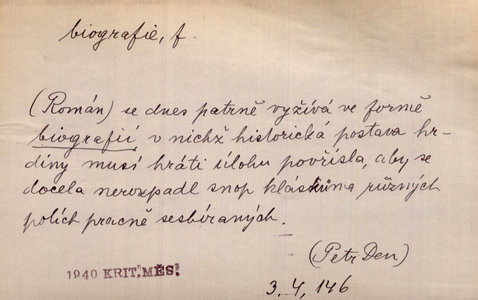 biografie, f.
(Román) se dnes patrně vyžívá ve formě
biografií v nichž historická postava hr-
diny musí hráti úlohu povřísla, aby se
docela nerozpadl snop klásků na různých
polích pracně sesbíraných.
(Petr Den)
1940 KRIT. MĚS.
3. 4, 146